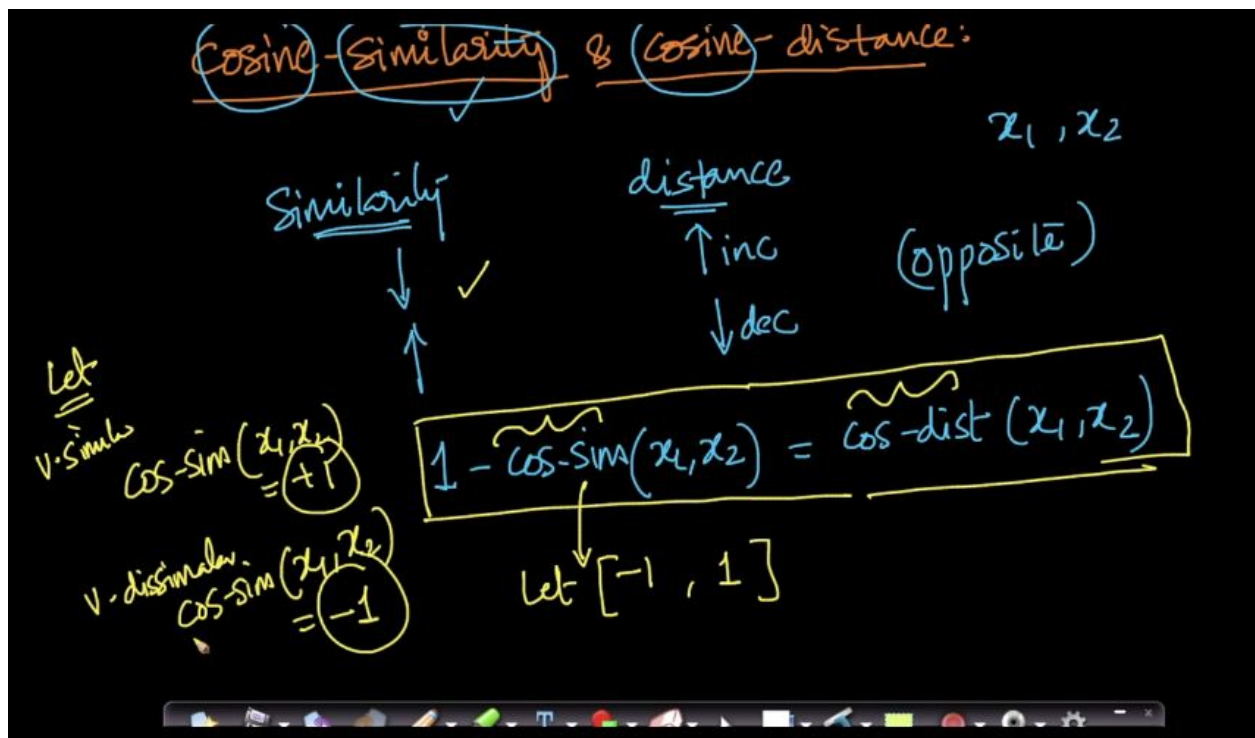 Cosine-Similarity & Cosine-distance:
x1, x2
Similarity distance
↑ inc
(opposite)
↓ dec
Let
V. similar
cos-sim(x1, x2)
= +1
1 - cos-sim(x1, x2) = cos-dist (x1, x2)
V. dissimalar.
cos-sim(x1, x2)
= -1
Let [-1, 1]
T